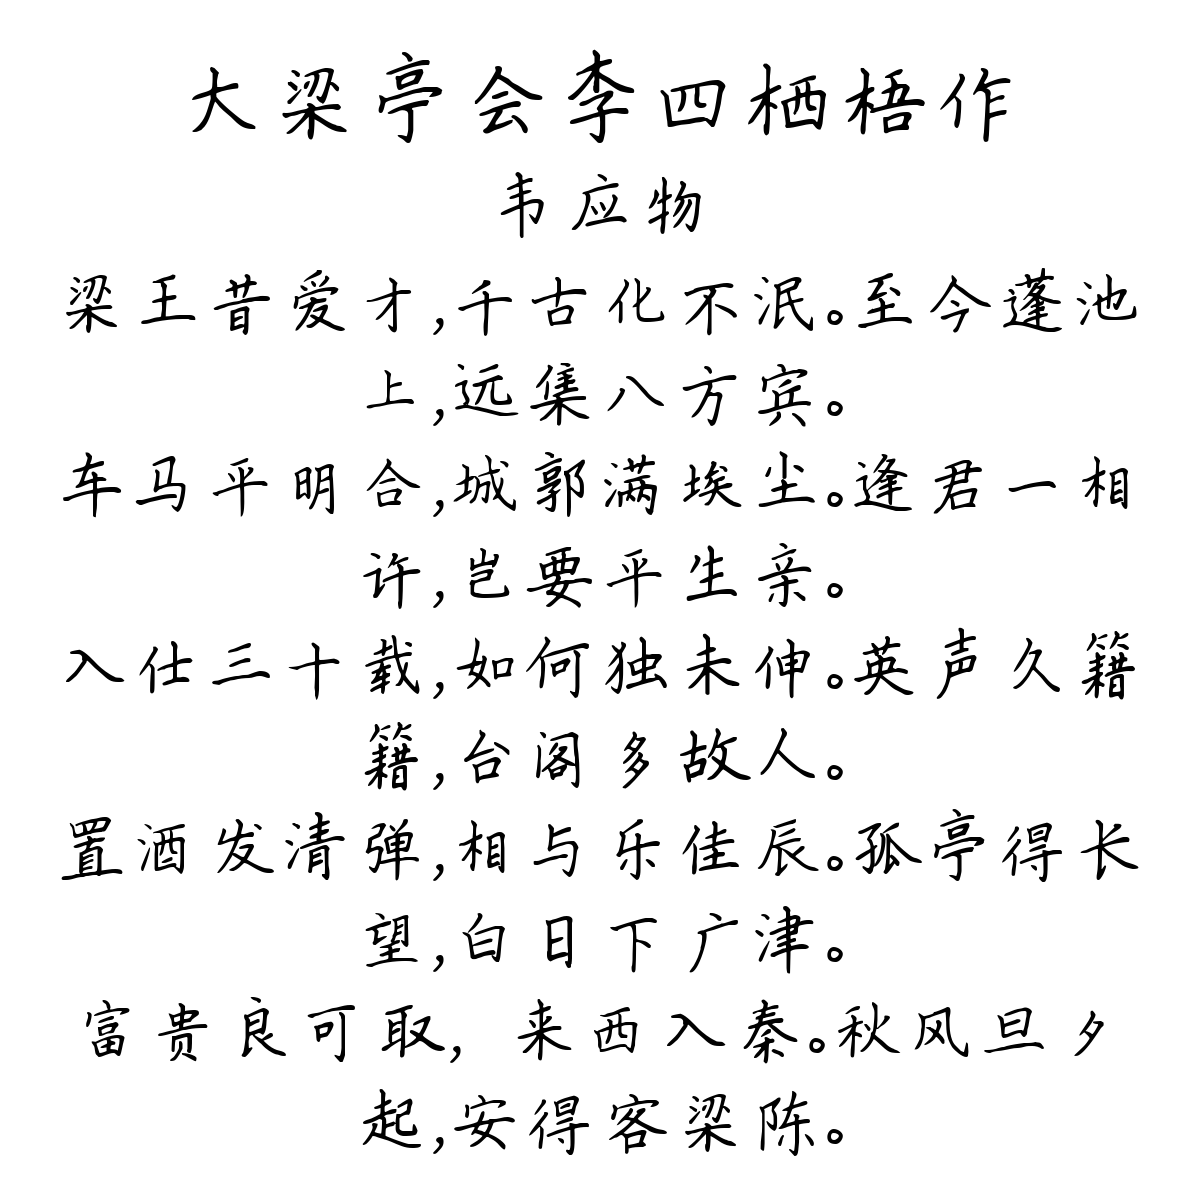 大梁亭会李四栖梧作
韦应物
梁王昔爱才,千古化不泯。至今蓬池
上,远集八方宾。
车马平明合,城郭满埃尘。逢君一相
许,岂要平生亲。
入仕三十载,如何独未伸。英声久籍
籍,台阁多故人。
置酒发清弹,相与乐佳辰。孤亭得长
望,白日下广津。
富贵良可取, 来西入秦。秋风旦夕
起,安得客梁陈。